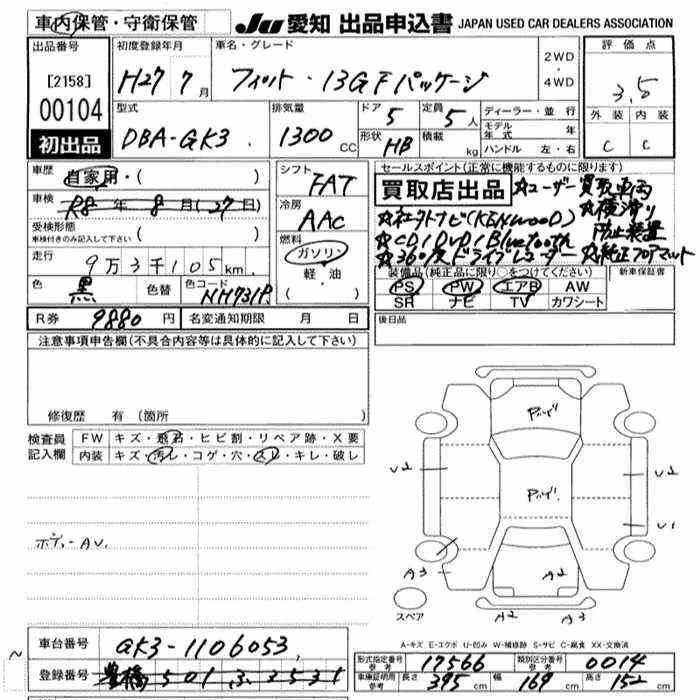 車内保管・守衛保管
JU 愛知 出品申込書 JAPAN USED CAR DEALERS ASSOCIATION
出品番号 初度登録年月 車名・グレード 2WD・4WD 評価点
[2158] H27 7月 フィット・13GFパッケージ 3.5
00104 型式 排気量 ドア 5 定員 5人 ディーラー・並行 外装 内装
初出品 DBA-GK3 1300CC 形状 HB 積載 kg モデル年式 年 ハンドル 左・右 C C
車歴 自家用・( )
車検 R8年8月(27日)
受検形態 車検付きのみ記入して下さい ( )
走行 9万3千105km
色 黒 色替 色コード NH731P
シフト FAT
冷房 AAC
燃料 ガソリン・軽・油
セールスポイント(正常に機能するものに限ります)
買取店出品 ☆ユーザー買取車両
☆社外ナビ(KENWOOD) ☆横滑り
☆CD/DVD/Bluetooth 防止装置
☆360度ドライブレコーダー ☆純正フロアマット
装備品(純正品に限り○をつけてください) 新車保証書
PS PW エアB AW
SR ナビ TV カワシート
R券 9880円 名変通知期限 月 日
後日品
注意事項申告欄(不具合内容等は具体的に記入して下さい)
修復歴 有(箇所
検査員記入欄 FW キズ・飛石・ヒビ割・リペア跡・X要
内装 キズ・汚レ・コゲ・穴・スレ・キレ・破レ
ボディーAU.
U2
U2
U1
A3 A2 A3
スペア A2 A2
A-キズ E-エクボ U-凹み W-補修跡 S-サビ C-腐食 XX-交換済
車台番号 GK3-1106053
登録番号 豊橋 501 3 2531
形式指定番号 参考 17566 類別区分番号 参考 0014
車庫証明用 参考 長さ 395cm 幅 169cm 高さ 152cm